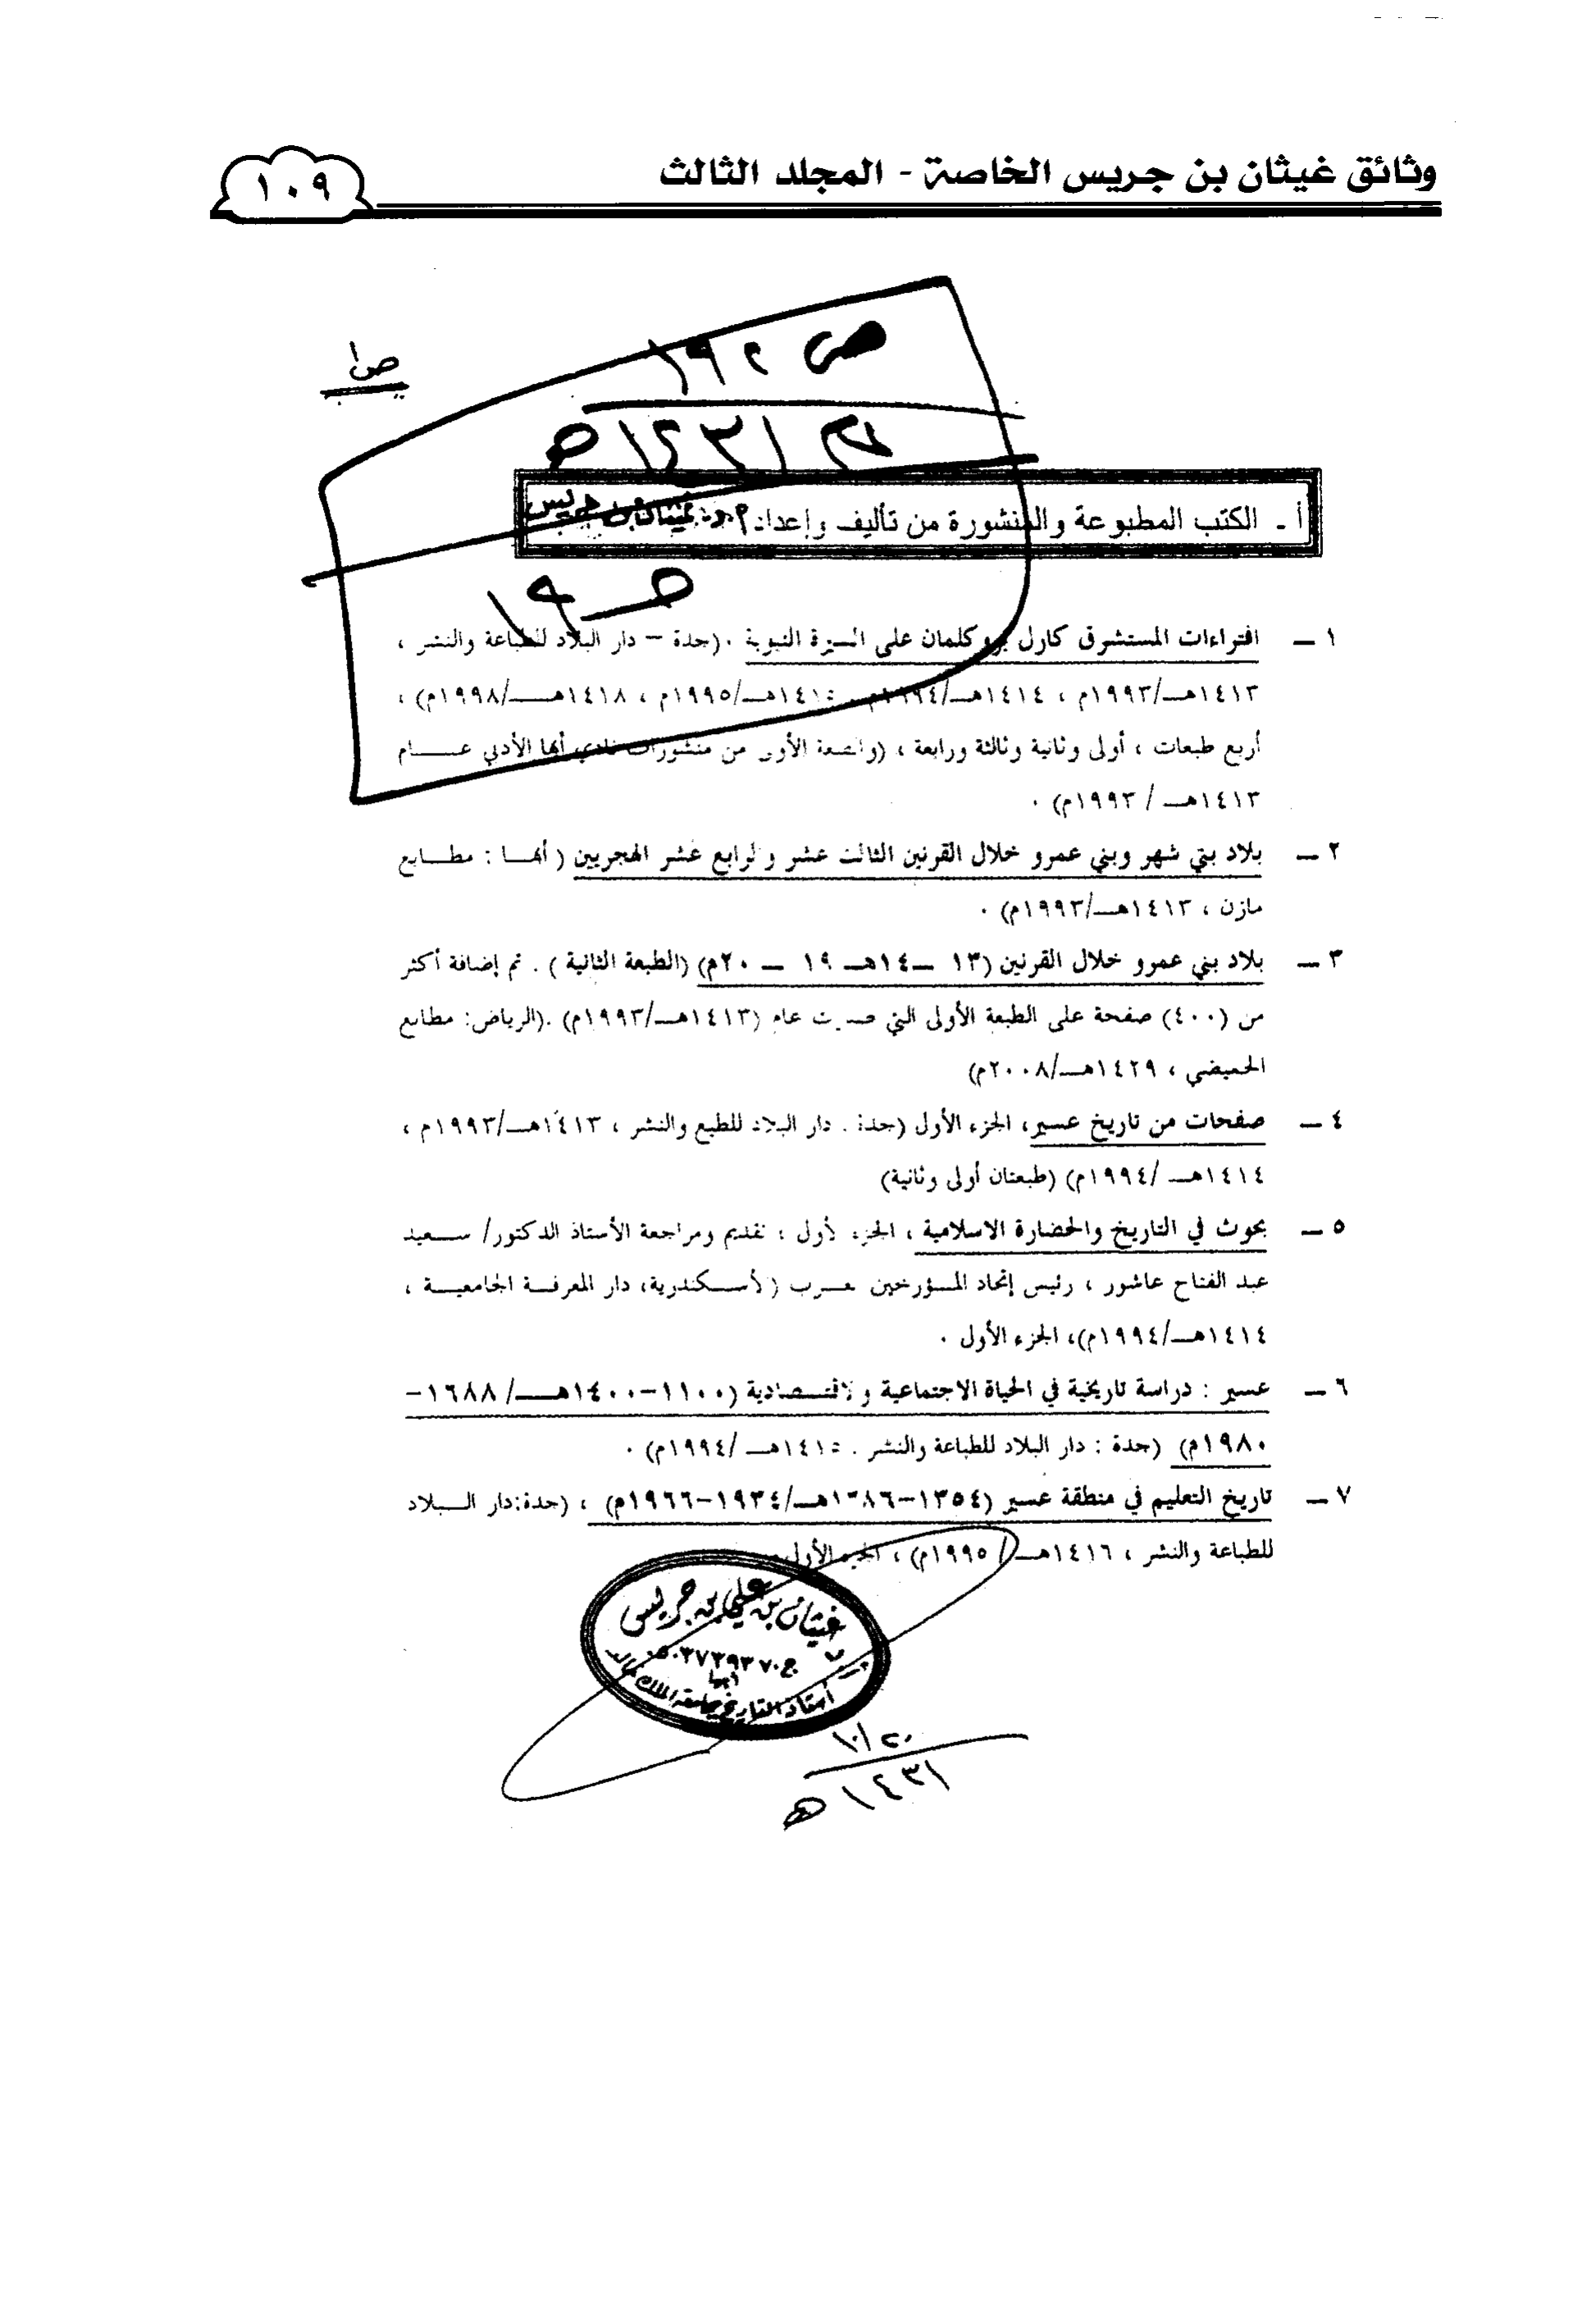 وثائق غيثان بن جريس الخاصة - المجلد الثالث
١٠٩
ص١
أ - الكتب المطبوعة والمنشورة من تأليف وإعداد غيثان بن جريس
١ - افتراءات المستشرق كارل بروكلمان على السيرة النبوية . (جدة – دار البلاد للطباعة والنشر ،
١٤١٣هـ/١٩٩٣م ، ١٤١٤هـ/١٩٩٤م ، ١٤١٥هـ/١٩٩٥م ، ١٤١٨هـ/١٩٩٨م) ،
أربع طبعات ، أولى وثانية وثالثة ورابعة ، (والطبعة الأولى من منشورات نادي أبها الأدبي عام
١٤١٣هـ / ١٩٩٣م) .
٢ - بلاد بني شهر وبني عمرو خلال القرنين الثالث عشر والرابع عشر الهجريين ( أبها : مطابع
مازن ، ١٤١٣هـ/١٩٩٣م) .
٣ - بلاد بني عمرو خلال القرنين (١٣ – ١٤هـ ١٩ – ٢٠م) (الطبعة الثانية ) . تم إضافة أكثر
من (٤٠٠) صفحة على الطبعة الأولى التي صدرت عام (١٤١٣هـ/١٩٩٣م) .(الرياض: مطابع
الحميضي ، ١٤٢٩هـ/٢٠٠٨م)
٤ - صفحات من تاريخ عسير، الجزء الأول (جدة . دار البلاد للطبع والنشر ، ١٤١٣هـ/١٩٩٣م ،
١٤١٤هـ /١٩٩٤م) (طبعتان أولى وثانية)
٥ - بحوث في التاريخ والحضارة الاسلامية ، الجزء الأول ؛ تقديم ومراجعة الأستاذ الدكتور/ سعيد
عبد الفتاح عاشور ، رئيس إتحاد المؤرخين العرب (الأسكندرية، دار المعرفة الجامعية ،
١٤١٤هـ/١٩٩٤م)، الجزء الأول .
٦ - عسير : دراسة تاريخية في الحياة الاجتماعية والاقتصادية (١١٠٠-١٤٠٠هـ/ ١٦٨٨-
١٩٨٠م) (جدة : دار البلاد للطباعة والنشر . ١٤١٥هـ /١٩٩٤م) .
٧ - تاريخ التعليم في منطقة عسير (١٣٥٤-١٣٨٦هـ/١٩٣٤-١٩٦٦م) ، (جدة:دار البلاد
للطباعة والنشر ، ١٤١٦هـ/ ١٩٩٥م) ، الجزء الأول
غيثان بن علي بن جريس
ج٠٥٠٣٧٣٩٣٧٠
أبها
أستاذ التاريخ جامعة الملك خالد
١٠/٢٠
١٤٣١هـ